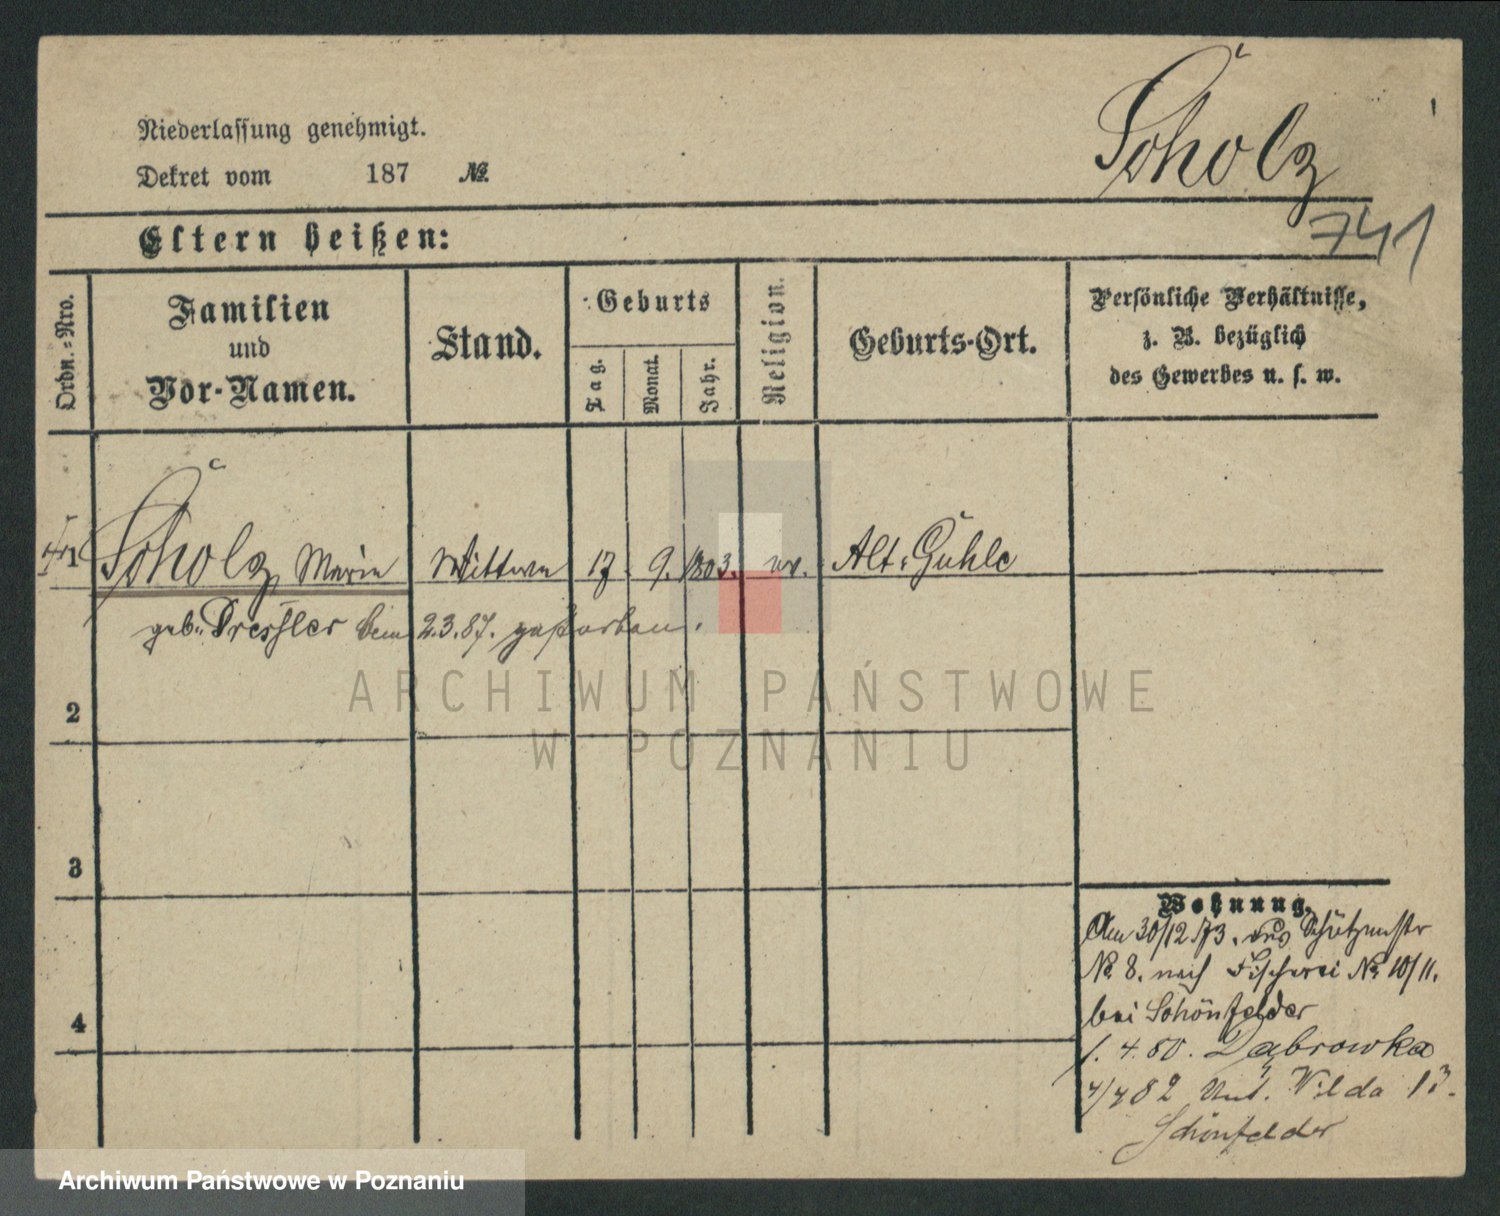 Scholz
Niederlassung genehmigt.
Dekret vom 187 №.
741
Eltern heißen:
Ordn.-Nro.
Familien
und
Vor-Namen.
Stand.
Geburts
Tag.
Monat.
Jahr.
Religion.
Geburts-Ort.
Persönliche Verhältnisse,
z. B. bezüglich
des Gewerbes u. s. w.
1 Scholz, Marie Wittwe 17. 9. 1803. ev. Alt-Guhle
geb. Dressler 2.3.87. gestorben.
2
3
4
Wohnung.
Am 30/12 73. aus Schützenstr
№ 8. nach Fischerei № 10/11.
bei Schönfelder
1. 4. 80. Dąbrowka
4/4 82 Unt. Wilda 13.
Schönfelder
ARCHIWUM PAŃSTWOWE
W POZNANIU
Archiwum Państwowe w Poznaniu